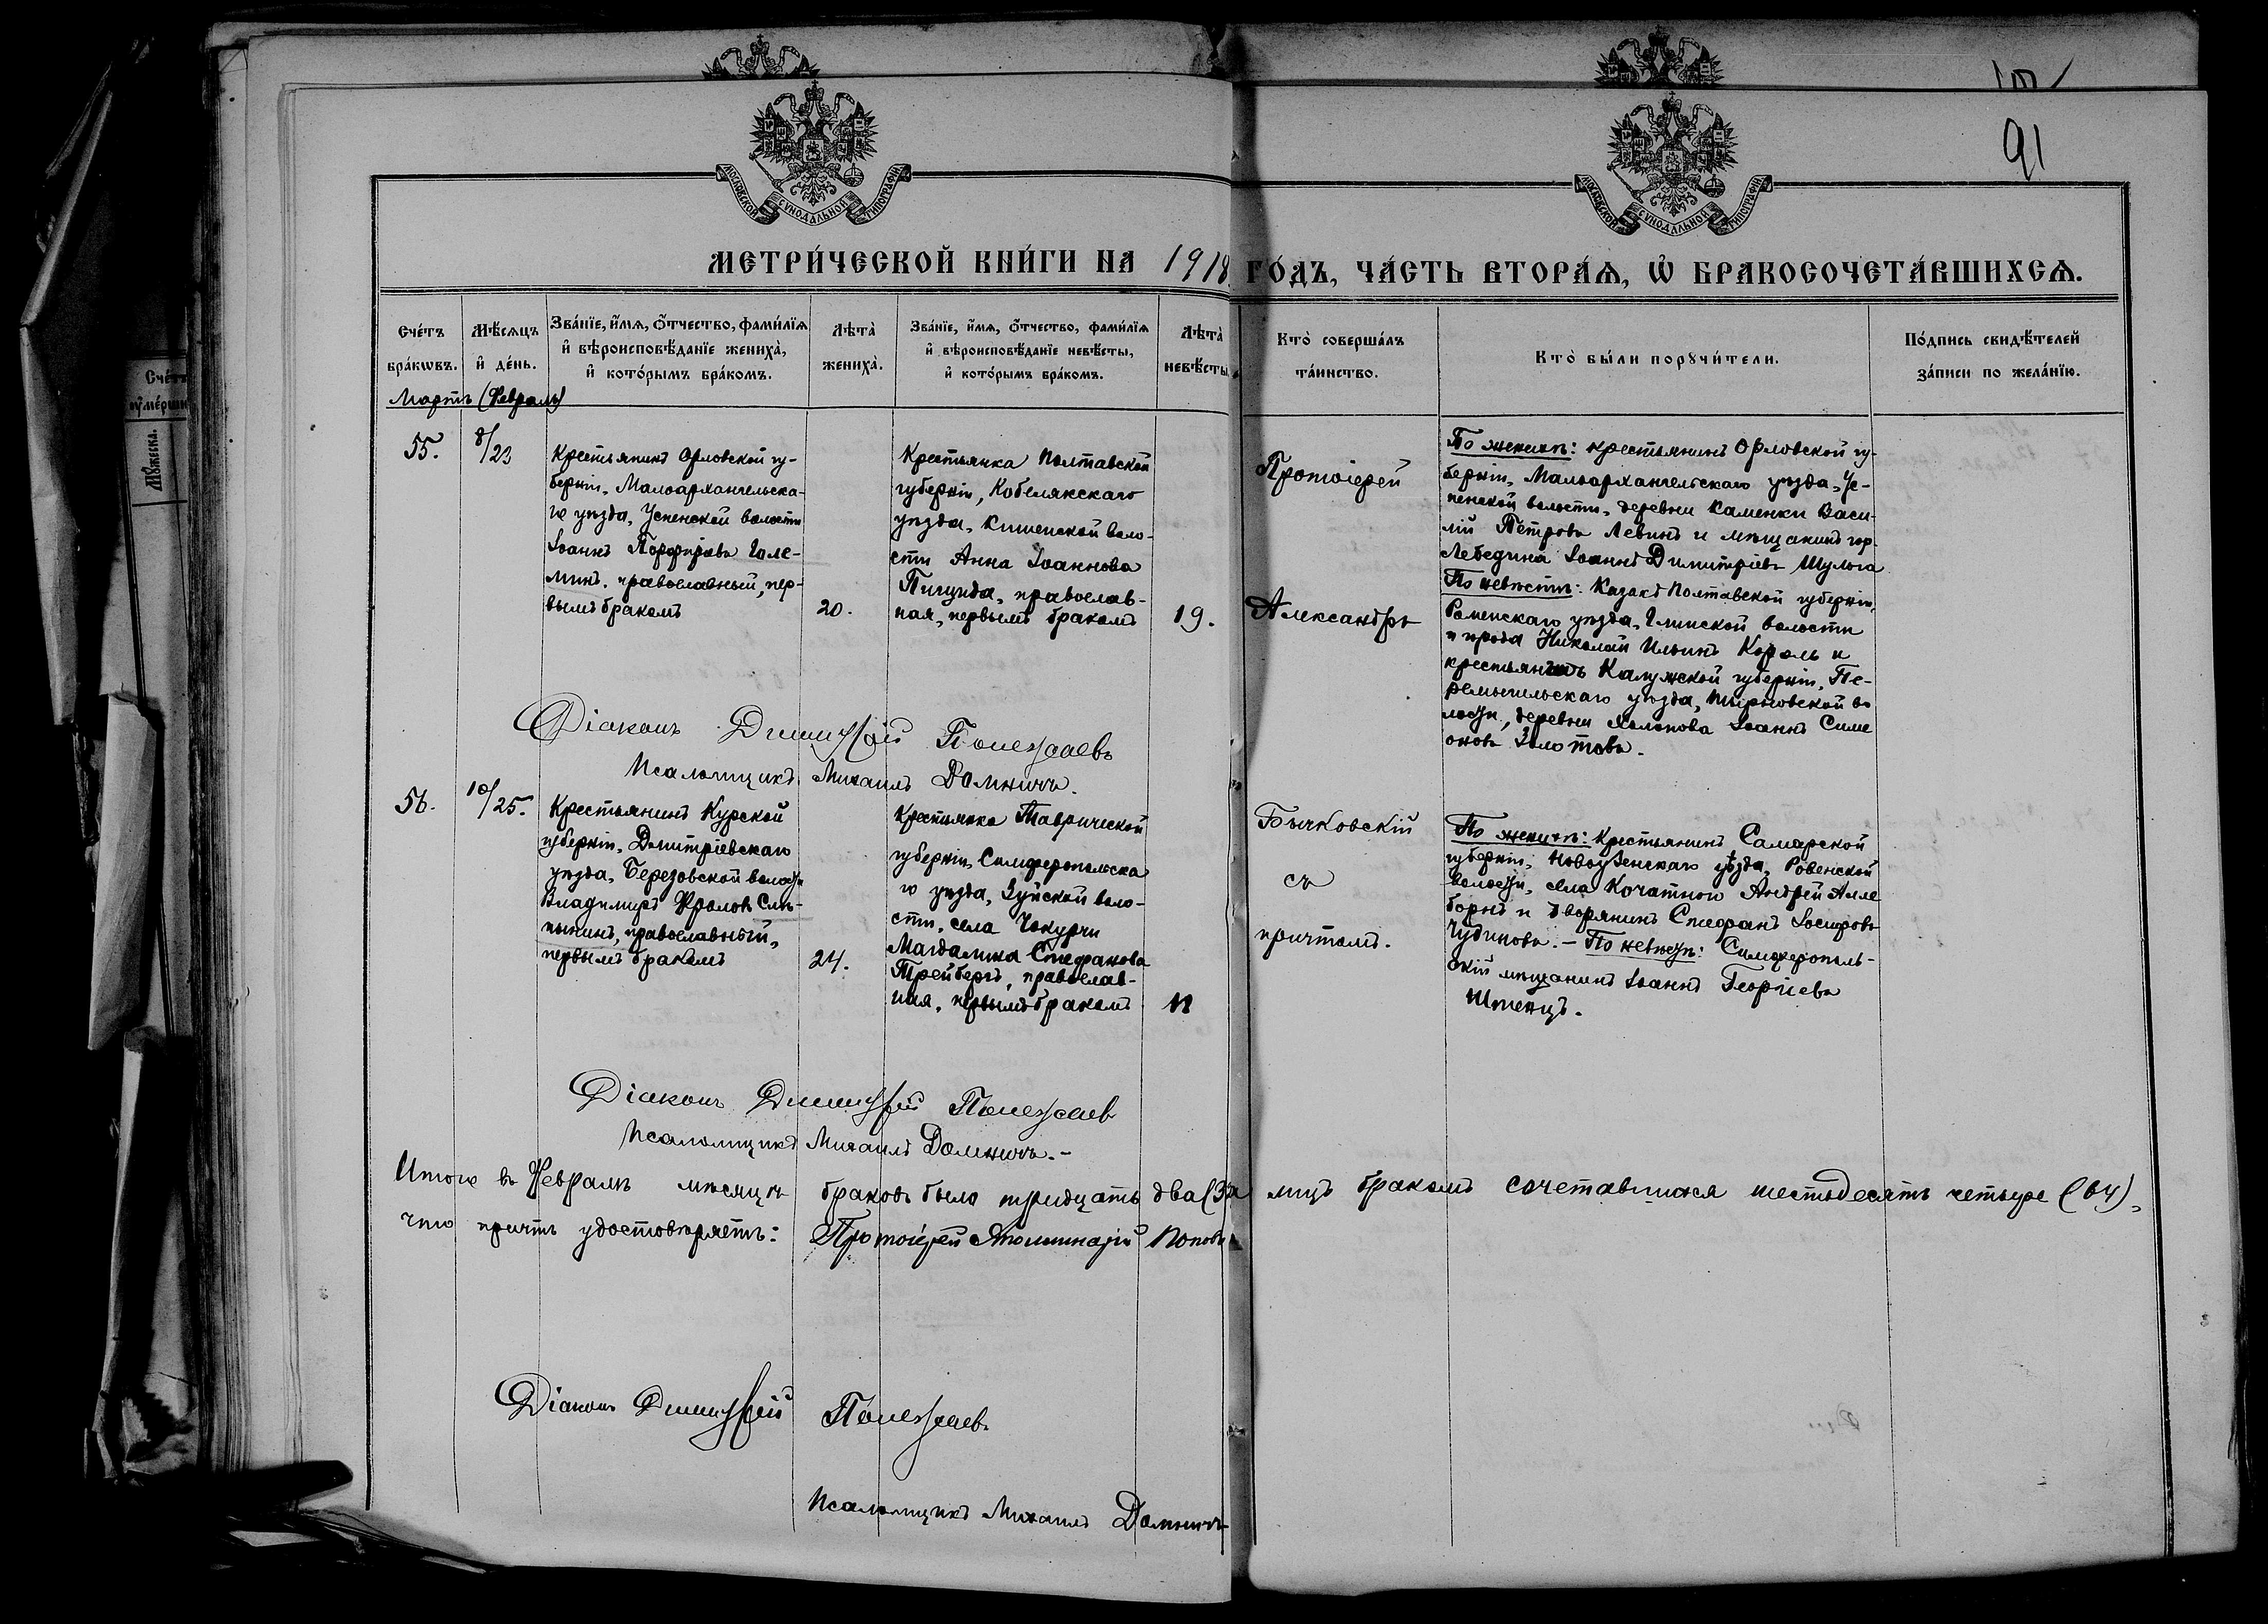 91
МОСКОВСКОЙ СѴНОДАЛЬНОЙ ТИПОГРАФІИ
МОСКОВСКОЙ СѴНОДАЛЬНОЙ ТИПОГРАФІИ
МЕТРИ́ЧЕСКОЙ КНИ́ГИ НА 1918 ГО́ДЪ, ЧА́СТЬ ВТОРА́Ѧ, Ѡ҆ БРАКОСОЧЕТА́ВШИХСѦ.
Сче́тъ бра́кѡвъ.
Мѣ́сѧцъ и҆ де́нь.
Зва́нїе, и҆́мѧ, ѻ҆́тчество, фами́лїѧ
и҆ вѣроисповѣ́данїе жениха̀,
и҆ кото́рымъ бра́комъ.
Лѣта̀ жениха̀.
Зва́нїе, и҆́мѧ, ѻ҆́тчество, фами́лїѧ
и҆ вѣроисповѣ́данїе невѣ́сты,
и҆ кото́рымъ бра́комъ.
Лѣта̀ невѣ́сты.
Кто̀ соверша́лъ
та́инство.
Кто̀ бы́ли порꙋчи́тели.
По́дпись свидѣ́телей
за́писи по жела́нїю.
Счетъ
Мꙋжеска.
Мартъ (Февраль)
55.
8/23
Крестьянинъ Орловской гу-
берніи, Малоархангельска-
го уѣзда, Успенской волости
Іоаннъ Порфиріевъ Голе-
минъ, православный, пер-
вымъ бракомъ
20.
Крестьянка Полтавской
губерніи, Кобелякскаго
уѣзда, Кишенской воло-
сти Анна Іоаннова
православ-
ная, первымъ бракомъ
19.
Протоіерей
Александръ
Бычковскій
съ
причтомъ.
По женихѣ: крестьянинъ Орловской гу-
берніи, Малоархангельскаго уѣзда, Ус-
пенской волости, деревни Каменки Васи-
лій Петровъ Левинъ и мѣщанинъ гор.
Лебедина Іоаннъ Димитріевъ Шульга
По невѣстѣ: Казакъ Полтавской губерніи,
Роменскаго уѣзда, Глинской волости
и города Николай Ильинъ Король и
крестьянинъ Калужской губерніи, Пе-
ремышльскаго уѣзда, во
лости, деревни Хохлова Іоаннъ Симе
оновъ Золотовъ.
Діаконъ Димитрій Полежаевъ
Псаломщикъ Михаилъ Домничъ.
56.
10/25.
Крестьянинъ Курской
губерніи, Дмитріевскаго
уѣзда, Березовской волости
Владимиръ Фроловъ Слѣ-
пынинъ, православный,
первымъ бракомъ
24.
Крестьянка Таврической
губерніи, Симферопольска
го уѣзда, Зуйской воло-
сти, села Чокурчи
Магдалина Стефанова
Трейбергъ, православ-
ная, первымъ бракомъ
По женихѣ: Крестьянинъ Самарской
губерніи, Новоузенскаго уѣзда, Ровенской
волости, села Кочатного Андрей Алле
борнъ и дворянинъ Стефанъ Іосифовъ
Чубиновъ. – По невѣстѣ: Симферополь-
скій мѣщанинъ Іоаннъ Георгіевъ
Штенцъ.
Діаконъ Димитрій Полежаевъ
Псаломщикъ Михаилъ Домничъ. –
Итого въ Февралѣ мѣсяцѣ браковъ было тридцать два (32 лицъ бракомъ сочетавшихся шестьдесятъ четыре (64),
что причтъ удостовѣряетъ: Протоіерей Поповъ
Діаконъ Димитрій Полежаевъ.
Псаломщикъ Михаилъ Домничъ